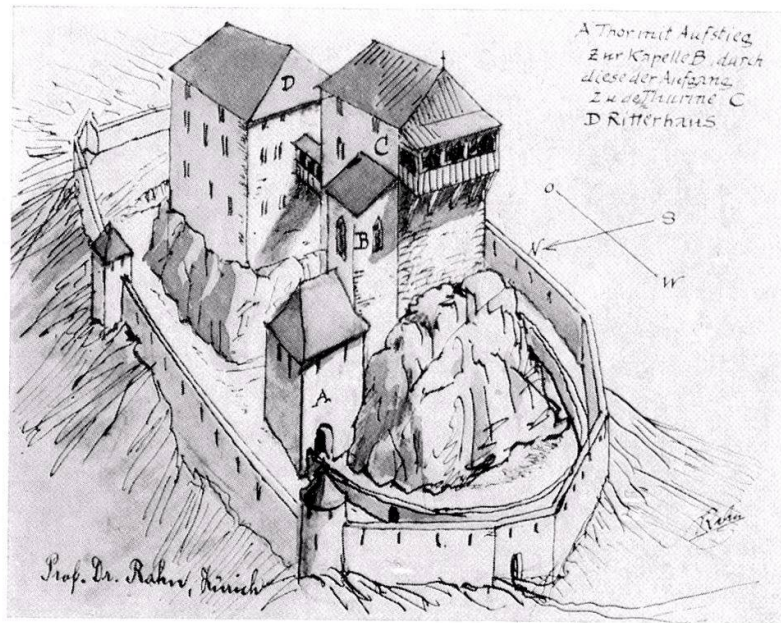 A Thor mit Aufstieg
zur Kapelle B, durch
diese der Aufgang
zu de Thurme C
D Ritterhaus
O
S
N
W
D
C
B
A
Rahn
Prof. Dr. Rahn, Zürich